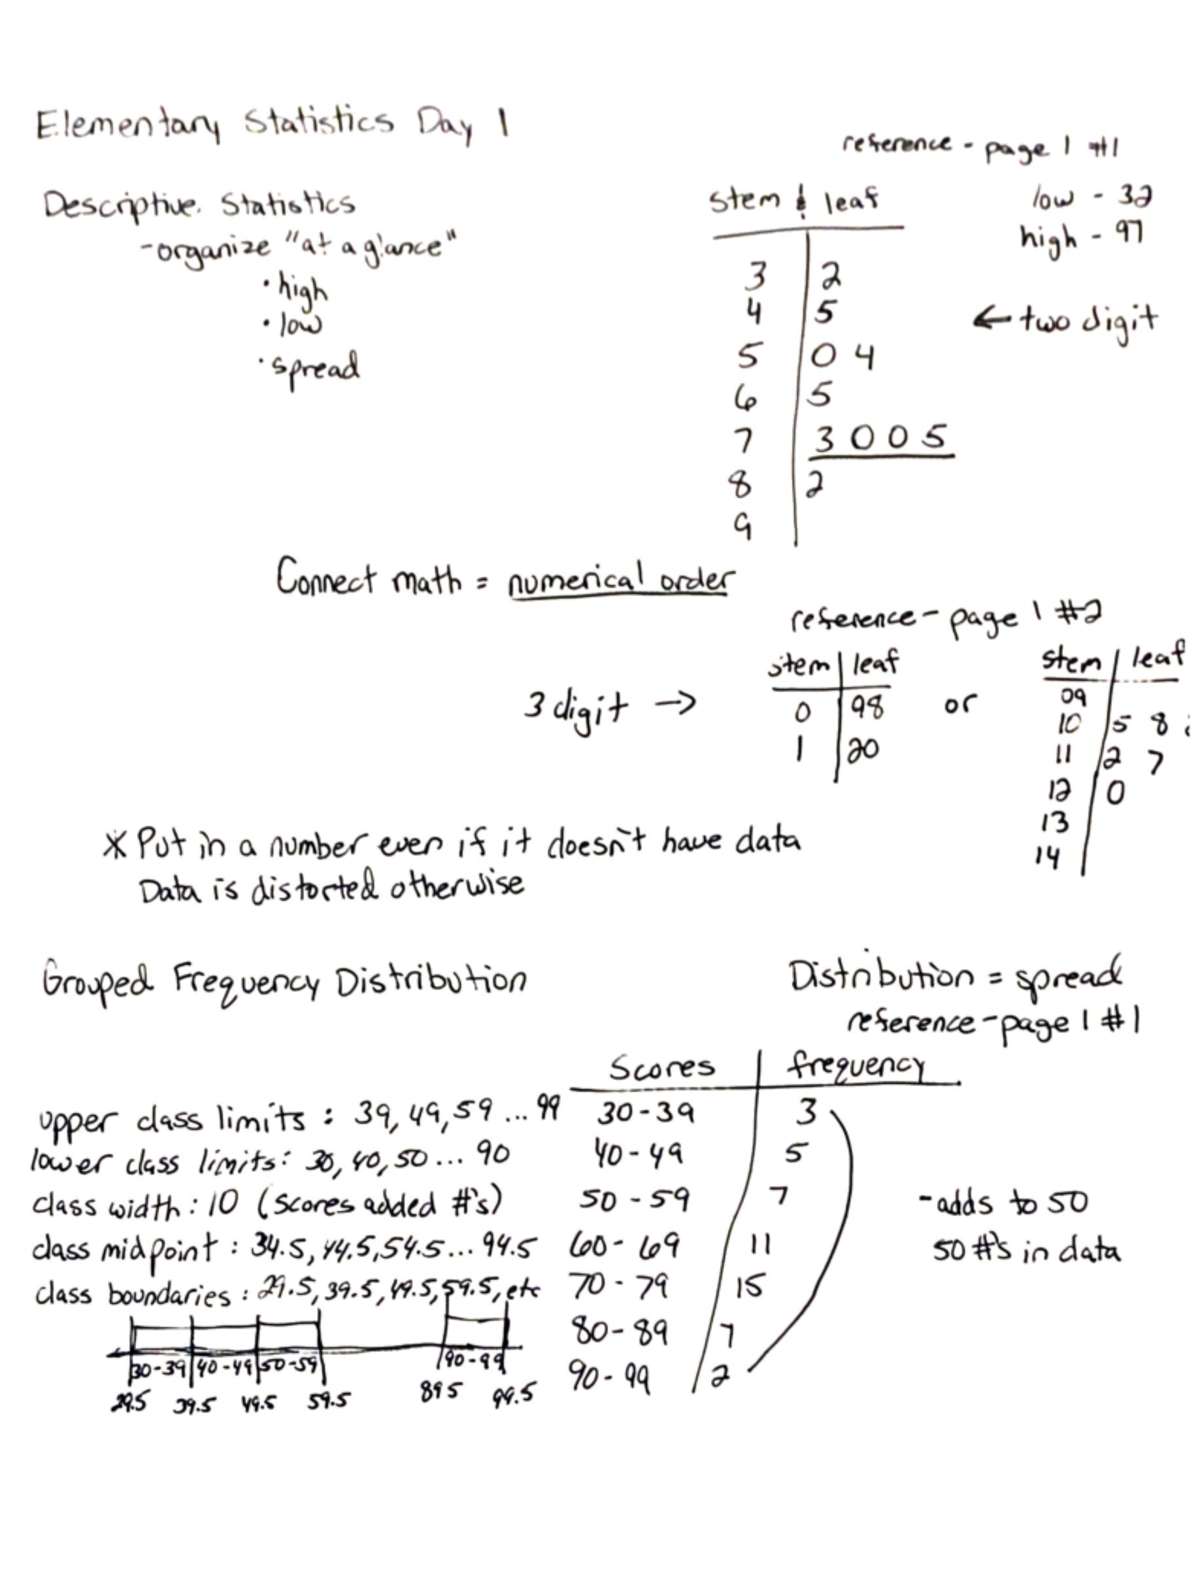 Elementary Statistics Day 1
reference - page 1 #1
Descriptive Statistics
-organize "at a glance"
• high
• low
• spread
stem & leaf
low - 32
high - 97
3 | 2
4 | 5
← two digit
5 | 0 4
6 | 5
7 | 3 0 0 5
8 | 2
9 |
Connect math = numerical order
reference - page 1 #2
3 digit →
stem | leaf
0 | 98
1 | 20
or
stem | leaf
09 |
10 | 5 8
11 | 2 7
12 | 0
13 |
14 |
* Put in a number even if it doesn't have data
Data is distorted otherwise
Grouped Frequency Distribution
Distribution = spread
reference - page 1 #1
Scores | frequency
upper class limits : 39, 49, 59 ... 99
30 - 39 | 3
lower class limits: 30, 40, 50 ... 90
40 - 49 | 5
class width : 10 (scores added #'s)
50 - 59 | 7
-adds to 50
class midpoint : 34.5, 44.5, 54.5 ... 94.5
60 - 69 | 11
50 #'s in data
class boundaries : 29.5, 39.5, 49.5, 59.5, etc
70 - 79 | 15
80 - 89 | 7
90 - 99 | 2
30-39 40-49 50-59 90-99
29.5 39.5 49.5 59.5 89.5 99.5